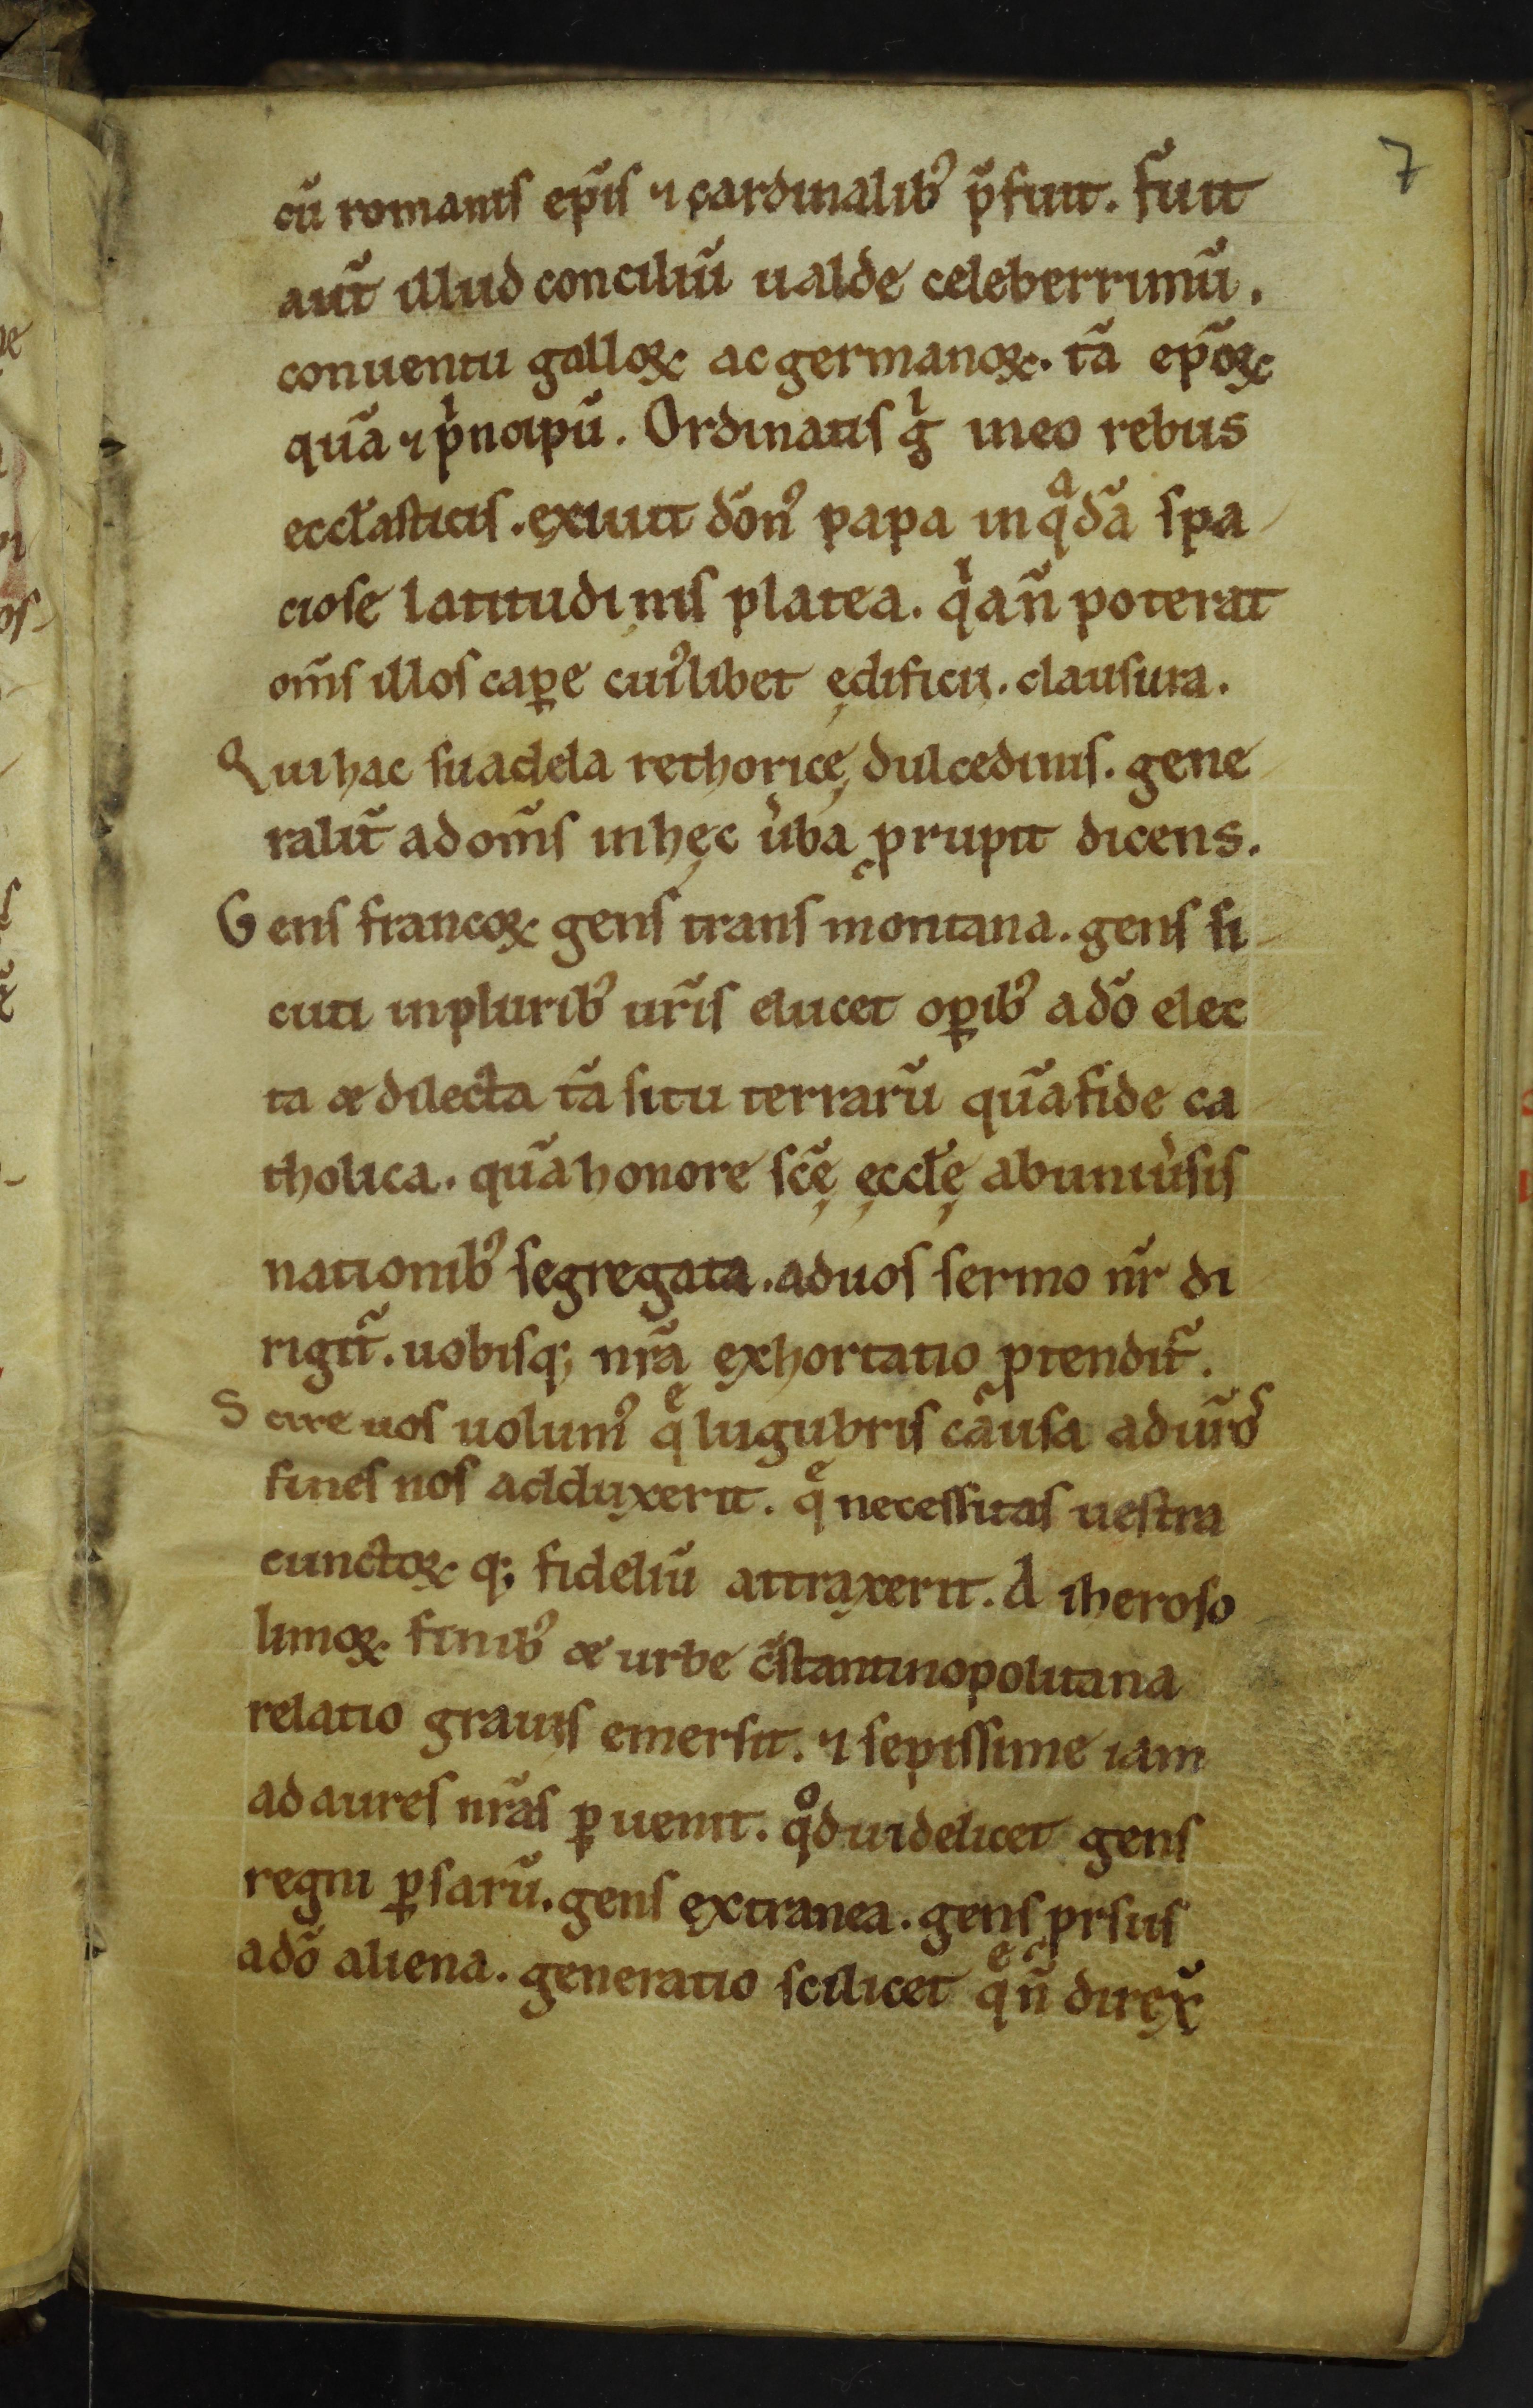 7
cū romanis ep̄is ⁊ cardinalibꝰ p̄fuit. Fuit
aut̄ illud conciliū ualde celeberrimū.
conuentu galloꝝ ac germanoꝝ. tā ep̄oꝝ
quā ⁊ pͥncipū. Ordinatis gͥ in eo rebus
eccłasticis. exiuit dōnꝰ papa in qͣdā spa
ciose latitudinis platea. qͥa n̄ poterat
om̄is illos caꝑe cuiꝰlibet ędificii. clausura.
Qui hac suadela rethoricę dulcedinis. gene
ralit̄ ad om̄is in hęc u̓ba ꝓrupit dicens.
Gens francoꝝ gens trans montana. gens si
cuti in pluribꝰ ur̄is elucet oꝑibꝰ a dō elec
ta & dilecta tā situ terrarū quā fide ca
tholica. quā honore sc̄ę ęccłę ab uniu̓sis
nationibꝰ segregata. ad uos sermo nr̄ di
rigit᷑. uobisq; nr̄a exhortatio ꝓtendit᷑.
Scire uos uolumꝰ qͤ lugubris causa ad ur̄os
fines nos adduxerit. qͤ necessitas uestra
cunctoꝝ q; fideliū attraxerit. A iheroso
limoꝝ finibꝰ & urbe c̄stantinopolitana
relatio grauis emersit. ⁊ sepissime iam
ad aures nr̄as ꝑuenit. qͦd uidelicet gens
regni ꝑsarū. gens extranea. gens ꝓrsus
a dō aliena. generatio scilicet qͤ n̄ direx̄